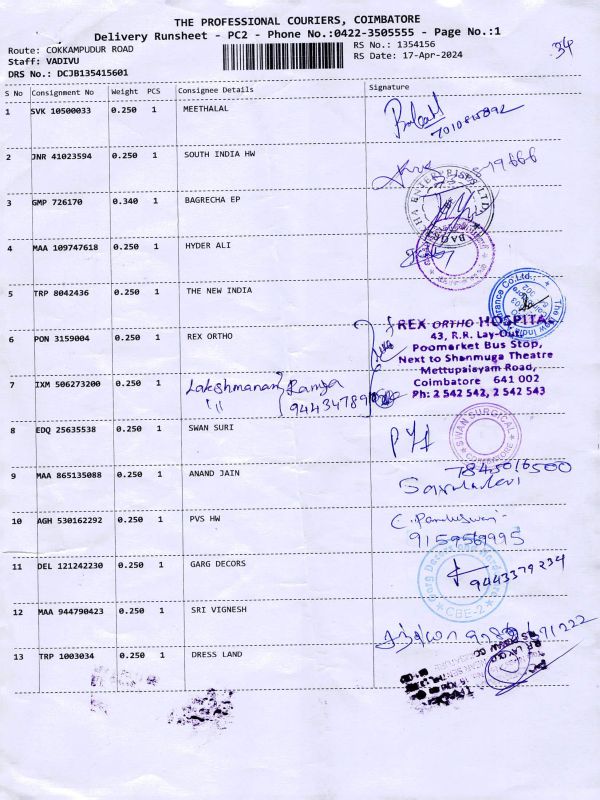 THE PROFESSIONAL COURIERS, COIMBATORE
Delivery Runsheet - PC2 - Phone No.:0422-3505555 - Page No.:1
Route: COKKAMPUDUR ROAD
Staff: VADIVU
DRS No.: DCJB135415601
RS No.: 1354156
RS Date: 17-Apr-2024
34
S No Consignment No Weight PCS Consignee Details Signature
1 SVK 10500033 0.250 1 MEETHALAL
2 JNR 41023594 0.250 1 SOUTH INDIA HW
3 GMP 726170 0.340 1 BAGRECHA EP
4 MAA 109747618 0.250 1 HYDER ALI
5 TRP 8042436 0.250 1 THE NEW INDIA
6 PON 3159004 0.250 1 REX ORTHO
REX ORTHO HOSPITAL
43, R.R. Lay-Out,
Poomarket Bus Stop,
Next to Shanmuga Theatre
Mettupalayam Road,
Coimbatore 641 002
Ph: 2 542 542, 2 542 543
7 IXM 506273200 0.250 1 Lakshmanan Ramya
8 EDQ 25635538 0.250 1 SWAN SURI
SWAN SURGICAL
9 MAA 865135088 0.250 1 ANAND JAIN
7845016500
10 AGH 530162292 0.250 1 PVS HW
9159569995
11 DEL 121242230 0.250 1 GARG DECORS
9443379234
CBE-2
12 MAA 944790423 0.250 1 SRI VIGNESH
13 TRP 1003034 0.250 1 DRESS LAND